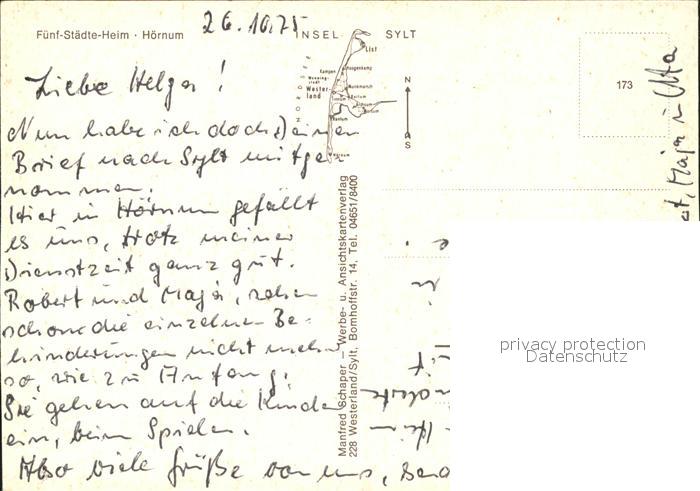 Fünf-Städte-Heim · Hörnum
26.10.75
INSEL SYLT
173
Liebe Helga!
Nun habe ich doch einen
Brief nach Sylt mitge-
nommen.
Hier in Hörnum gefällt
es uns, trotz meiner
Dienstzeit ganz gut.
Robert und Maja, sehen
schon die einzelnen Be-
hinderungen nicht mehr
so, wie zu Anfang.
Sie gehen auf die Kinder
ein, beim Spielen.
Also viele Grüße von uns,
Maja u Uta
Manfred Schaper – Werbe- u. Ansichtskartenverlag
228 Westerland/Sylt, Bomhoffstr. 14, Tel. 04651/8400
List
Kampen
Wester-
land
N
S
privacy protection
Datenschutz